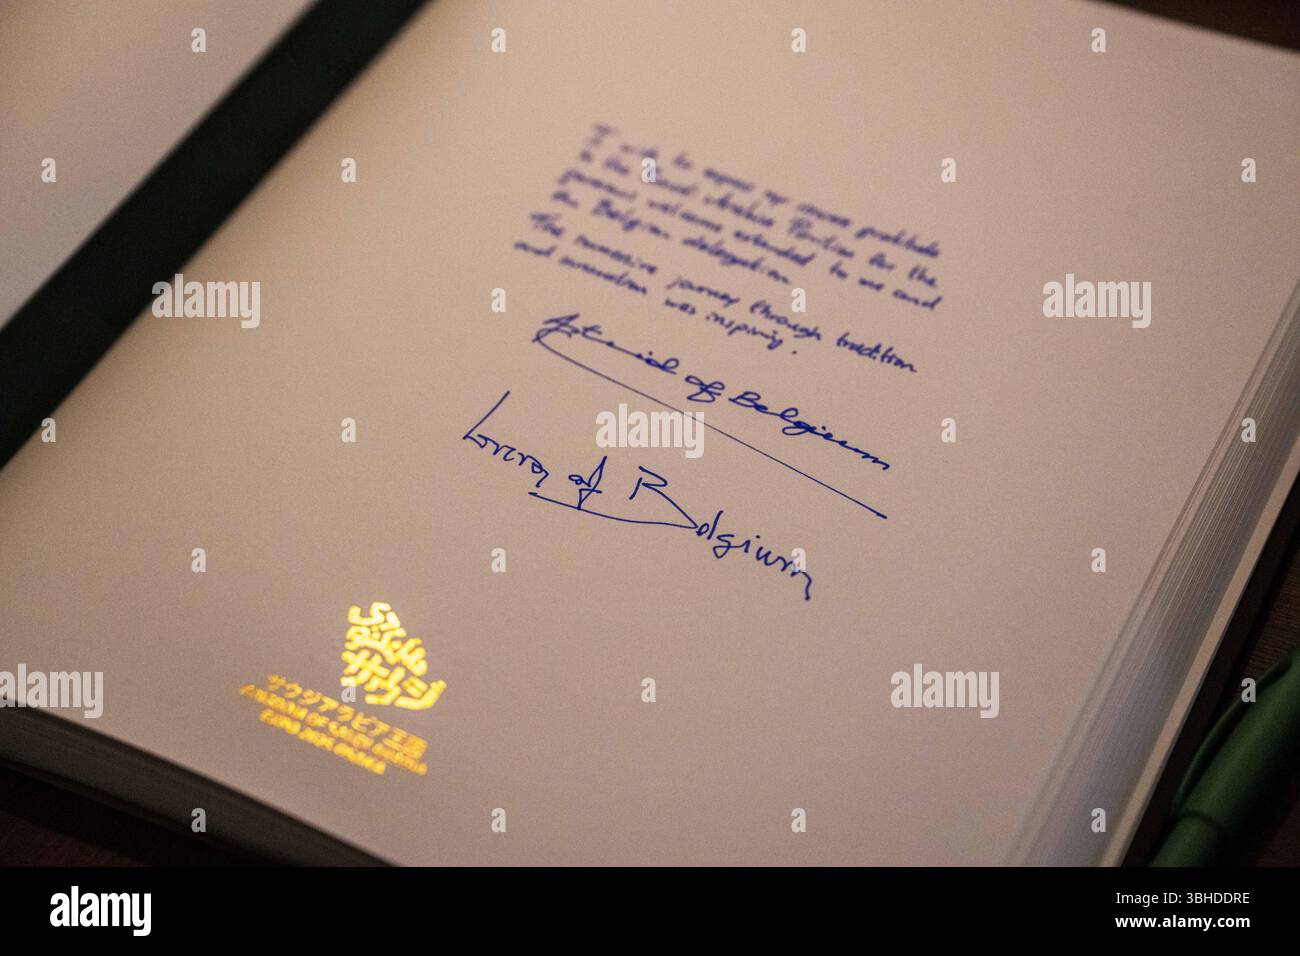 I wish to express my sincere gratitude
to the Saudi Arabia Pavilion for the
generous welcome extended to me and
the Belgian delegation.
The immersive journey through tradition
and innovation was inspiring.
Astrid of Belgium
Lorenz of Belgium
サウジアラビア王国
KINGDOM OF SAUDI ARABIA
EXPO 2025 OSAKA
alamy
Image ID: 3BHDDRE
www.alamy.com